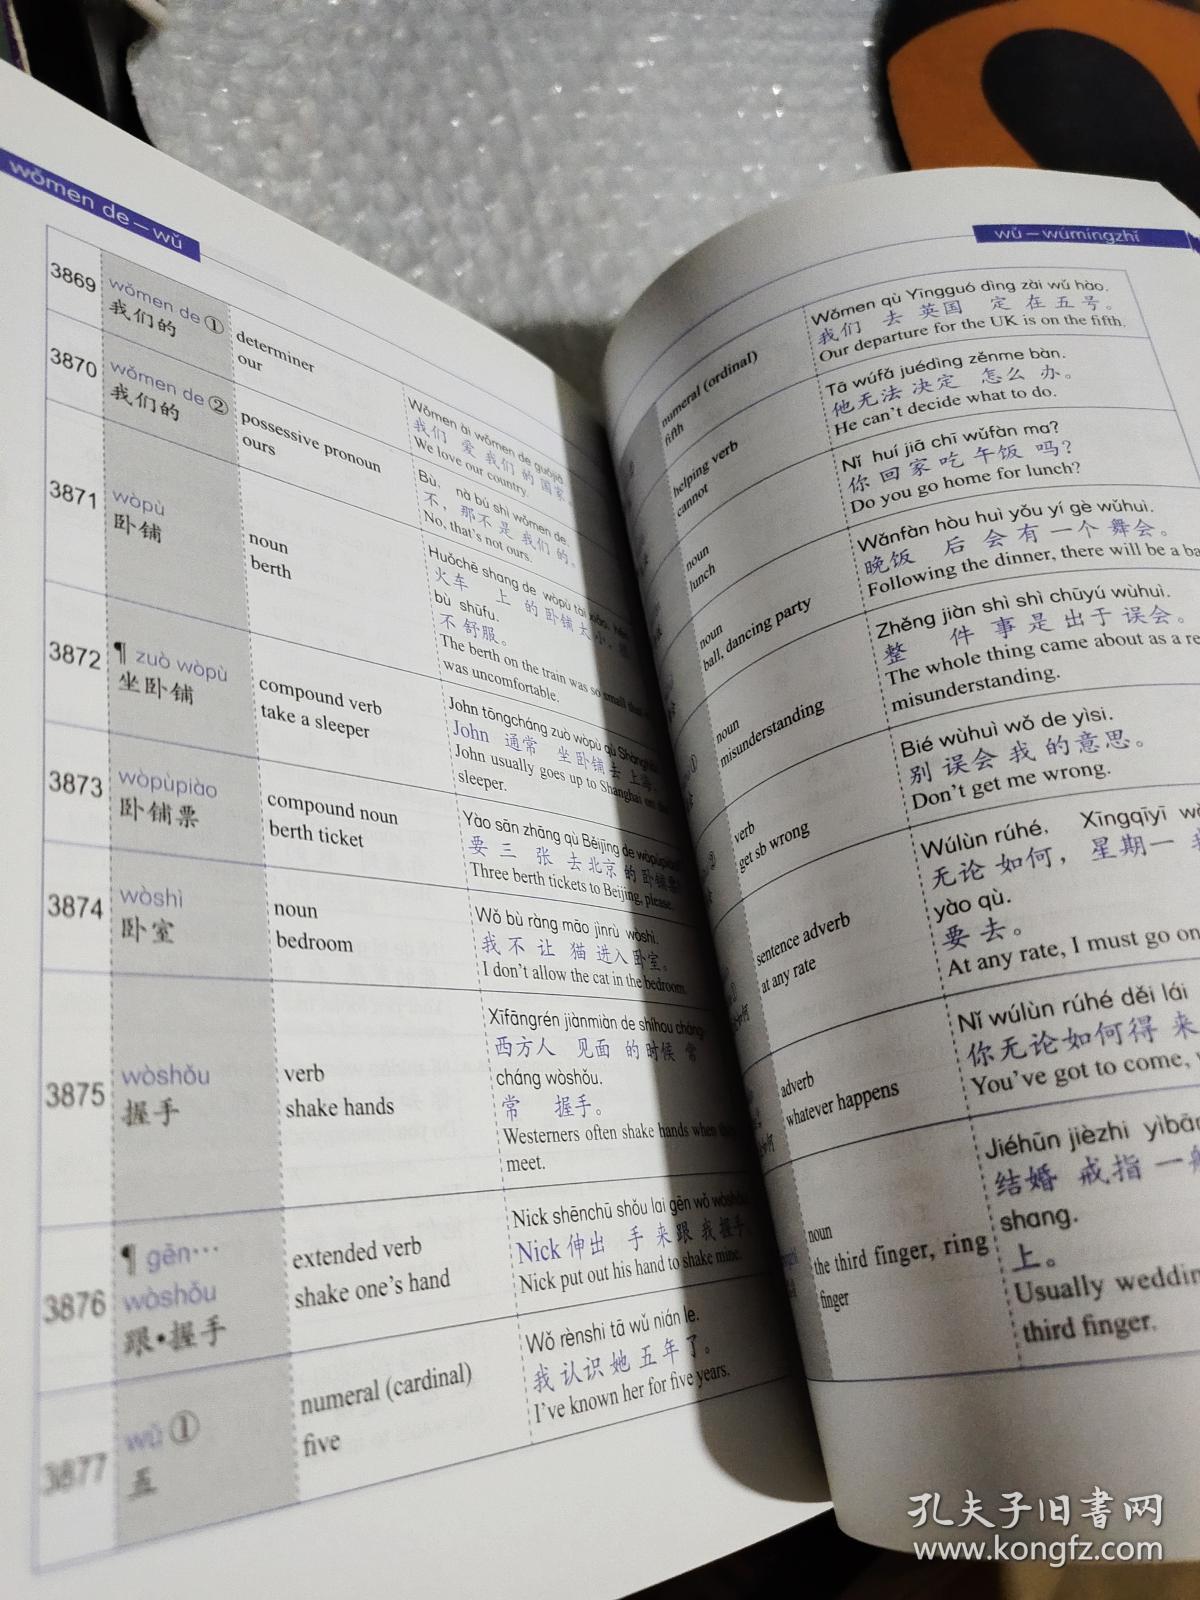 wǒmen de – wǔ
3869
wǒmen de ①
我们的
determiner
our
Wǒmen ài wǒmen de guójiā
我们 爱 我们 的 国家
We love our country.
3870
wǒmen de ②
我们的
possessive pronoun
ours
Bù, nà bú shì wǒmen de.
不，那不 是 我们 的。
No, that's not ours.
3871
wòpù
卧铺
noun
berth
Huǒchē shang de wòpù tài
火车 上 的 卧铺 太 小，
bù shūfu.
不 舒服。
The berth on the train was so small that
was uncomfortable.
3872
¶ zuò wòpù
坐卧铺
compound verb
take a sleeper
John tōngcháng zuò wòpù qù Shànghǎi.
John 通常 坐 卧铺 去 上海。
John usually goes up to Shanghai on the
sleeper.
3873
wòpùpiào
卧铺票
compound noun
berth ticket
Yào sān zhāng qù Běijīng de wòpùpiào
要 三 张 去 北京 的 卧铺票
Three berth tickets to Beijing, please.
3874
wòshì
卧室
noun
bedroom
Wǒ bù ràng māo jìnrù wòshì.
我 不 让 猫 进入 卧室。
I don't allow the cat in the bedroom.
3875
wòshǒu
握手
verb
shake hands
Xīfāngrén jiànmiàn de shíhou cháng-
西方人 见面 的 时候 常
cháng wòshǒu.
常 握手。
Westerners often shake hands when they
meet.
3876
¶ gēn…
wòshǒu
跟•握手
extended verb
shake one's hand
Nick shēnchū shǒu lai gēn wǒ wòshǒu.
Nick 伸出 手 来 跟 我 握手。
Nick put out his hand to shake mine.
3877
wǔ ①
五
numeral (cardinal)
five
Wǒ rènshi tā wǔ nián le.
我 认识 她 五 年 了。
I've known her for five years.
wǔ – wúmíngzhǐ
numeral (ordinal)
fifth
Wǒmen qù Yīngguó dìng zài wǔ hào.
我们 去 英国 定 在 五 号。
Our departure for the UK is on the fifth.
helping verb
cannot
Tā wúfǎ juédìng zěnme bàn.
他 无法 决定 怎么 办。
He can't decide what to do.
noun
lunch
Nǐ huí jiā chī wǔfàn ma?
你 回 家 吃 午饭 吗?
Do you go home for lunch?
noun
ball, dancing party
Wǎnfàn hòu huì yǒu yí gè wǔhuì.
晚饭 后 会 有 一个 舞会。
Following the dinner, there will be a ba
①
noun
misunderstanding
Zhěng jiàn shì shì chūyú wùhuì.
整 件 事 是 出于 误会。
The whole thing came about as a re
misunderstanding.
②
verb
get sb wrong
Bié wùhuì wǒ de yìsi.
别 误会 我 的 意思。
Don't get me wrong.
sentence adverb
at any rate
Wúlùn rúhé, Xīngqīyī wǒ
无论 如何，星期一 我
yào qù.
要 去。
At any rate, I must go on
adverb
whatever happens
Nǐ wúlùn rúhé děi lái
你 无论 如何 得 来
You've got to come,
noun
the third finger, ring
finger
Jiéhūn jièzhi yìbān
结婚 戒指 一般
shang.
上。
Usually weddin
third finger.
孔夫子旧书网
www.kongfz.com